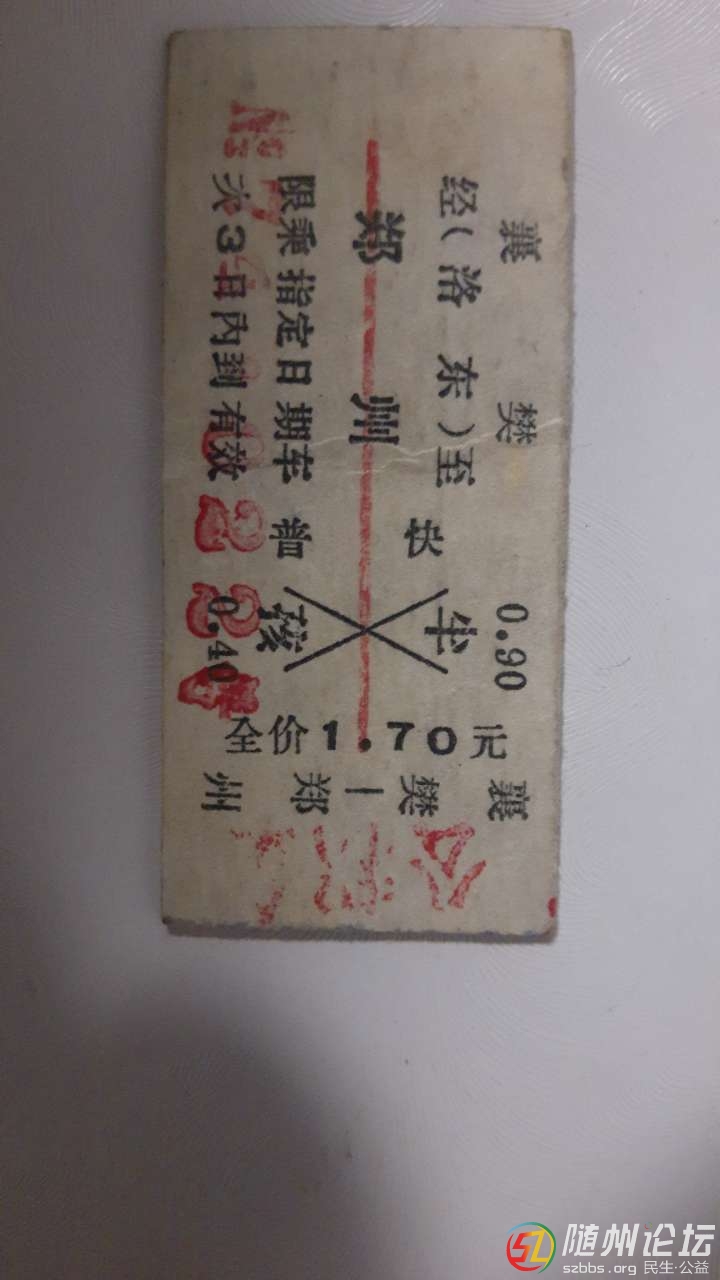 襄樊
经(洛东)至
郑州
限乘指定日期车
次3日内到有效
快
普
半 0.90
孩 0.40
全价1.70元
襄樊—郑州
随州论坛
szbbs.org 民生·公益